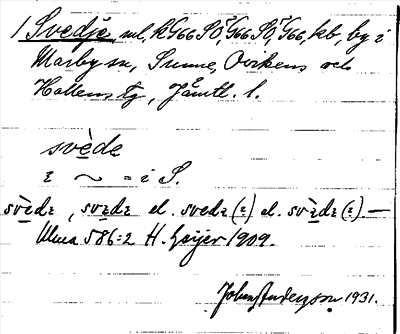 1 Svedje ml, k G66 SO, G66 SO, G66, kb, by i
Marby sn, Sunne, Ovikens och
Hallens tg, Jämtl. l.
svède
i ~ = i S.
svède, svede el. svede (i) el. svède (i) —
Ulma 586:2 H. Geijer 1909.
Johan Anderzson 1931.